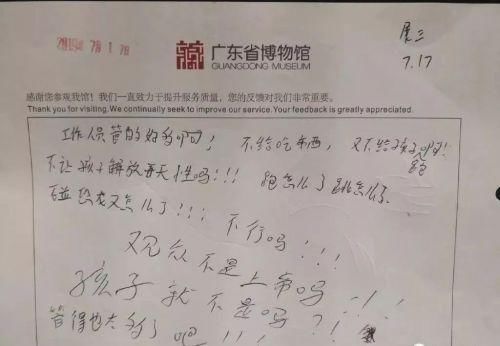 2019年7月17日
展三
7.17
广东省博物馆
GUANGDONG MUSEUM
感谢您参观我馆！我们一直致力于提升服务质量，您的反馈对我们非常重要。
Thank you for visiting. We continually seek to improve our service. Your feedback is greatly appreciated.
工作人员管的好多啊！ 不给吃东西，又不给孩子跑啊！
不让孩子解放天性吗！！！ 跑怎么了 跳怎么了
碰恐龙又怎么了！！！ 不行吗！！！
观众不是上帝吗！！
孩子就不是吗？！！
管得也太多了吧！！！